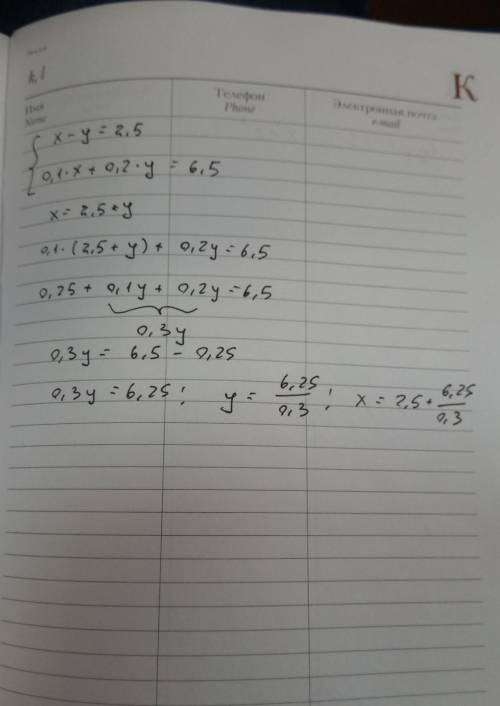 k, l
K
Имя Телефон Электронная почта
Name Phone e-mail
x - y = 2,5
0,1 · x + 0,2 · y = 6,5
x = 2,5 + y
0,1 · (2,5 + y) + 0,2y = 6,5
0,25 + 0,1y + 0,2y = 6,5
0,3y
0,3y = 6,5 - 0,25
0,3y = 6,25 ; y = 6,25/0,3 ; x = 2,5 + 6,25/0,3